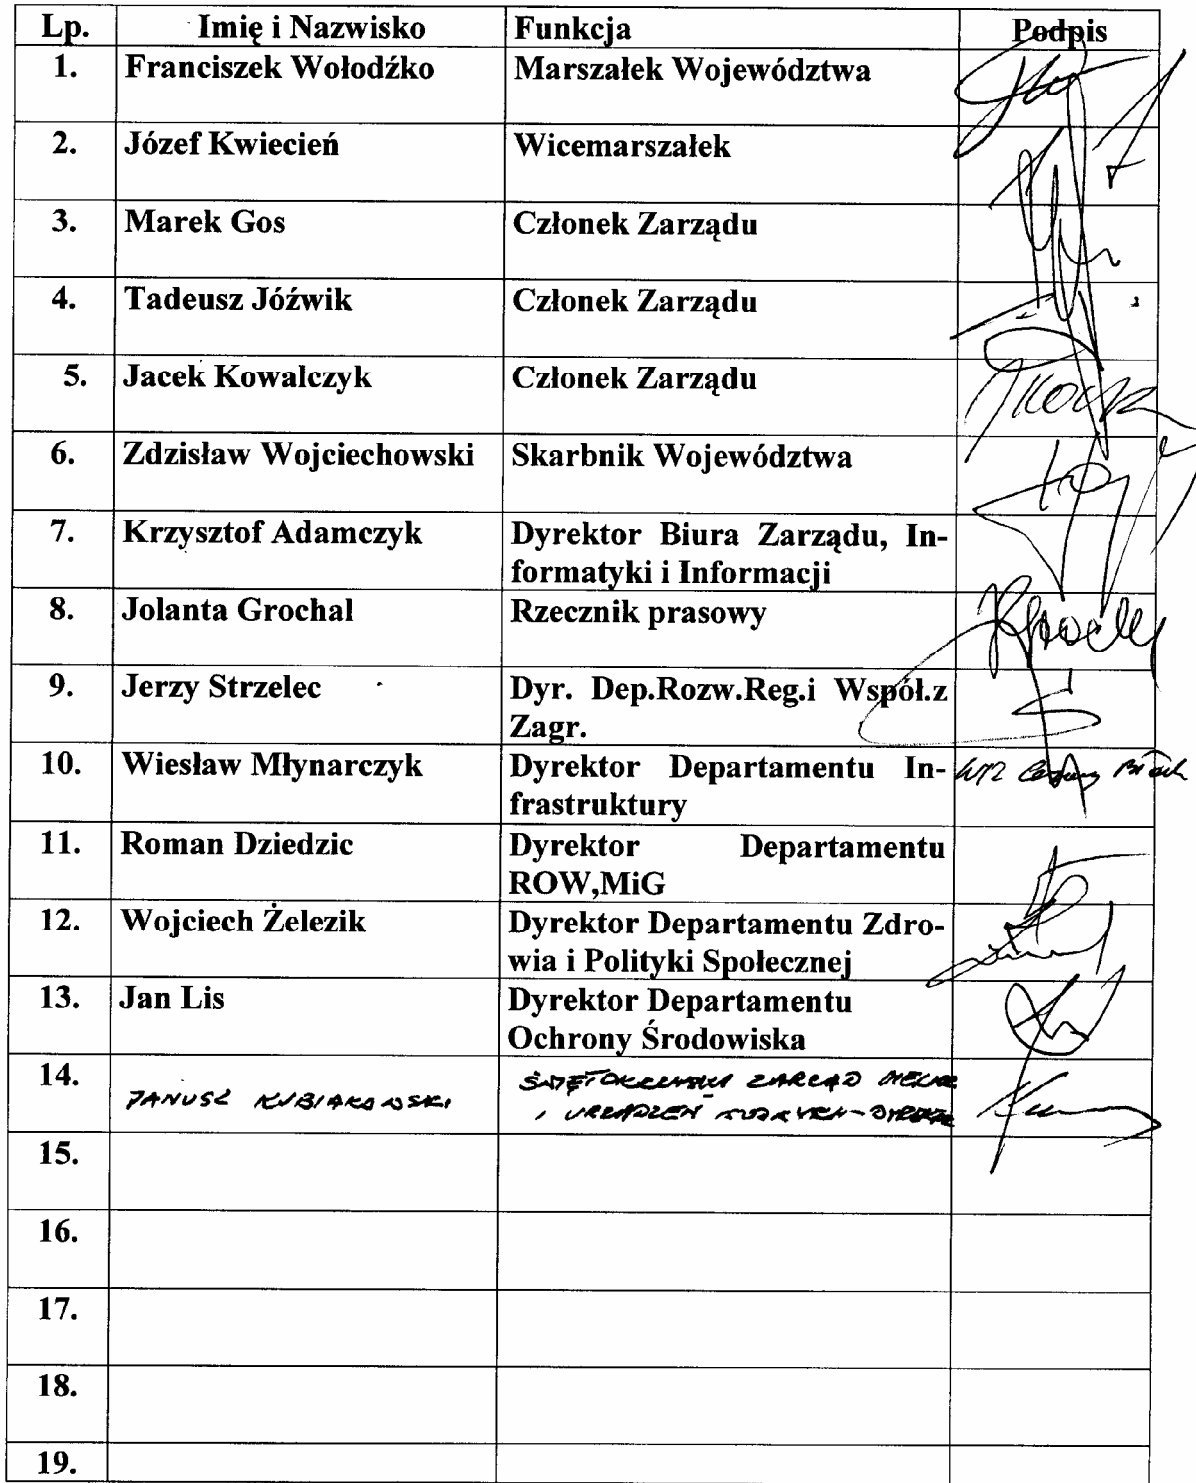 Lp. Imię i Nazwisko Funkcja Podpis
1. Franciszek Wołodźko Marszałek Województwa
2. Józef Kwiecień Wicemarszałek
3. Marek Gos Członek Zarządu
4. Tadeusz Jóźwik Członek Zarządu
5. Jacek Kowalczyk Członek Zarządu
6. Zdzisław Wojciechowski Skarbnik Województwa
7. Krzysztof Adamczyk Dyrektor Biura Zarządu, In-
formatyki i Informacji
8. Jolanta Grochal Rzecznik prasowy
9. Jerzy Strzelec Dyr. Dep.Rozw.Reg.i Współ.z
Zagr.
10. Wiesław Młynarczyk Dyrektor Departamentu In-
frastruktury
11. Roman Dziedzic Dyrektor Departamentu
ROW,MiG
12. Wojciech Żelezik Dyrektor Departamentu Zdro-
wia i Polityki Społecznej
13. Jan Lis Dyrektor Departamentu
Ochrony Środowiska
14. JANUSZ KUBIAKOWSKI ŚWIĘTOKRZYSKI ZARZĄD
I URZĄDZEŃ
15.
16.
17.
18.
19.